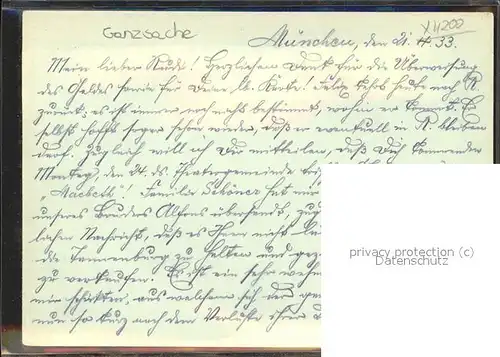 Ganzsache
München, den 21. 4. 33.
Mein lieber Rudl! Herzlichen Dank für die Überweisung
des Geldes sowie für Deine lb. Karte! fährt heute nach R.
zurück; es ist immer noch nicht bestimmt, wohin er kommt. Er
selbst hofft sogar schon wieder, daß er eventuell in R. bleiben
darf. Zugleich will ich Dir mitteilen, daß Dich kommenden
Montag, den 24. ds. Theatergemeinde
"Macbeth"! Familie Schöner hat mir
unseres Bruders Alfons übersandt, zug
licher Nachricht, daß es Herr nicht
die Tannenburg zu halten und
zu verkaufen. Es ist ein sehr
mir schickten, aus welchem sich
nun so kurz nach dem Verluste ihrer
privacy protection (c)
Datenschutz